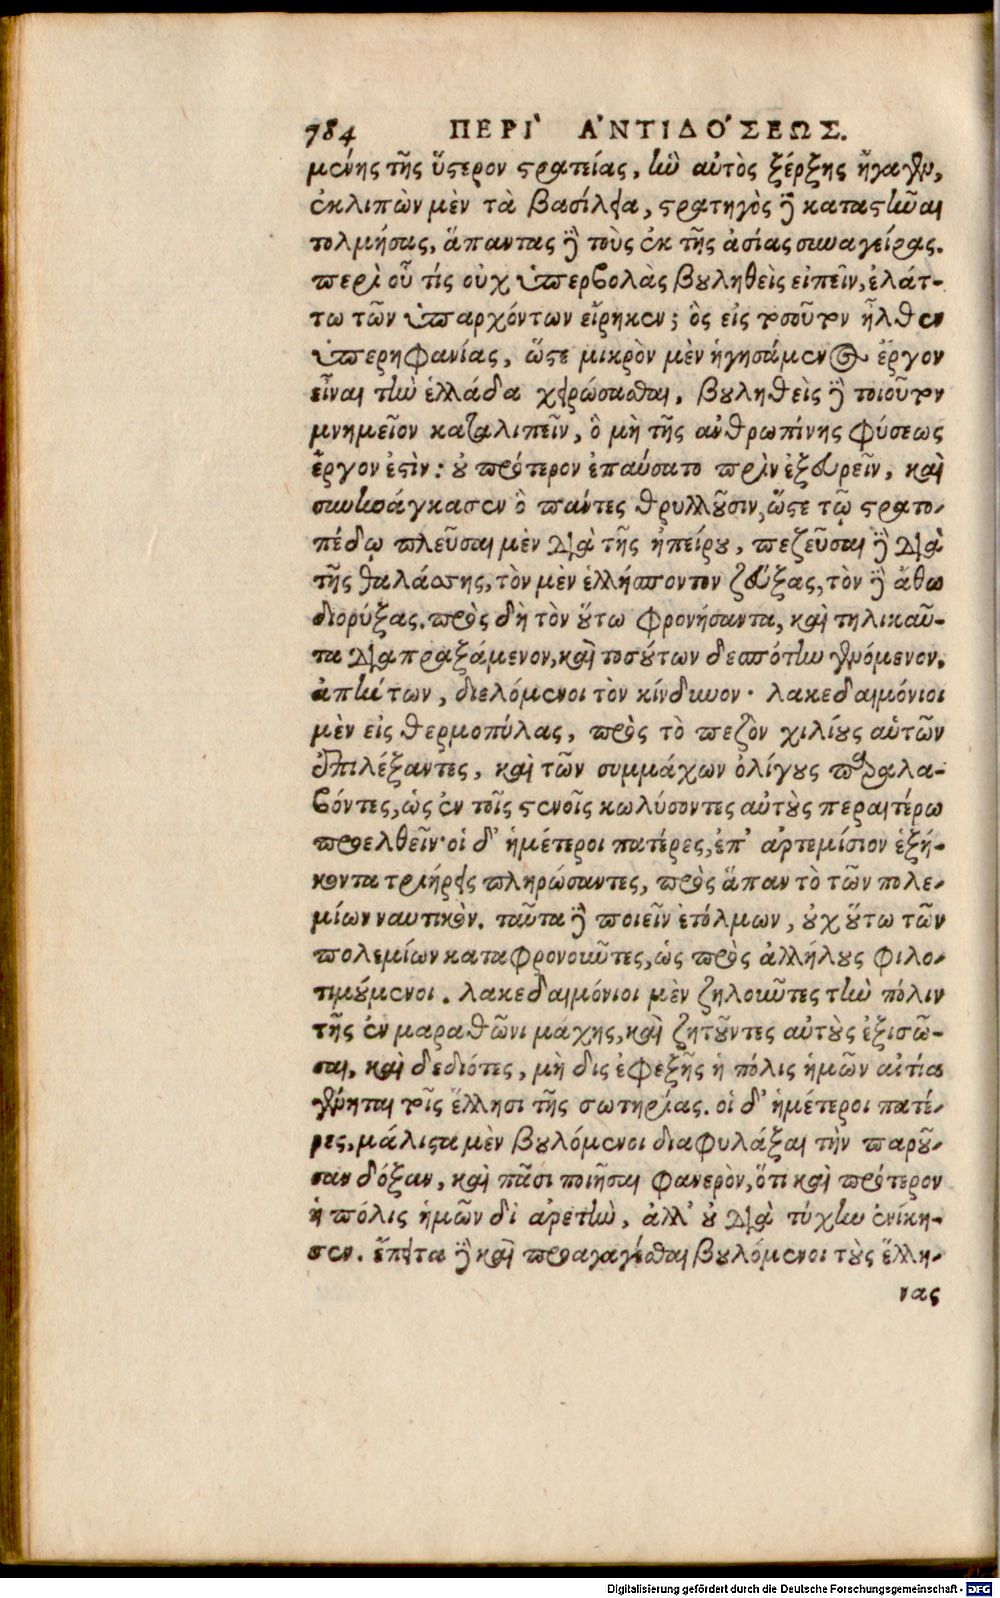 784 ΠΕΡΙ` Α᾿ΝΤΙΔΟ´ΣΕΩΣ.
μένης τῆς ὕστερον στρατείας, ἣν αὐτὸς ξέρξης ἤγαγεν,
ἐκλιπὼν μὲν τὰ βασίλεια, στρατηγὸς δὲ καταστῆναι
τολμήσας, ἅπαντας δὲ τοὺς ἐκ τῆς ἀσίας συναγείρας.
περὶ οὗ τίς οὐχ ὑπερβολὰς βουληθεὶς εἰπεῖν, ἐλάτ-
τω τῶν ὑπαρχόντων εἴρηκεν; ὃς εἰς τοσοῦτον ἦλθεν
ὑπερηφανίας, ὥστε μικρὸν μὲν ἡγησάμενος ἔργον
εἶναι τὴν ἑλλάδα χειρώσασθαι, βουληθεὶς δὲ τοιοῦτον
μνημεῖον καταλιπεῖν, ὃ μὴ τῆς ἀνθρωπίνης φύσεως
ἔργον ἐστὶν: οὐ πρότερον ἐπαύσατο πρὶν ἐξευρεῖν, καὶ
συνηνάγκασεν ὃ πάντες θρυλλοῦσιν, ὥστε τῷ στρατο-
πέδῳ πλεῦσαι μὲν διὰ τῆς ἠπείρου, πεζεῦσαι δὲ διὰ
τῆς θαλάσσης, τὸν μὲν ἑλλήσποντον ζεύξας, τὸν δὲ ἄθω
διορύξας. πρὸς δὴ τὸν οὕτω φρονήσαντα, καὶ τηλικαῦ-
τα διαπραξάμενον, καὶ τοσούτων δεσπότην γενόμενον.
ἀπήντων, διελόμενοι τὸν κίνδυνον· λακεδαιμόνιοι
μὲν εἰς θερμοπύλας, πρὸς τὸ πεζὸν χιλίους αὑτῶν
ἐπιλέξαντες, καὶ τῶν συμμάχων ὀλίγους παραλα-
βόντες, ὡς ἐν τοῖς στενοῖς κωλύσοντες αὐτοὺς περαιτέρω
προελθεῖν· οἱ δ' ἡμέτεροι πατέρες, ἐπ' ἀρτεμίσιον ἑξή-
κοντα τριήρεις πληρώσαντες, πρὸς ἅπαν τὸ τῶν πολε-
μίων ναυτικόν. ταῦτα δὲ ποιεῖν ἐτόλμων, οὐχ οὕτω τῶν
πολεμίων καταφρονοῦντες, ὡς πρὸς ἀλλήλους φιλο-
τιμούμενοι. λακεδαιμόνιοι μὲν ζηλοῦντες τὴν πόλιν
τῆς ἐν μαραθῶνι μάχης, καὶ ζητοῦντες αὑτοὺς ἐξισῶ-
σαι, καὶ δεδιότες, μὴ δις ἐφεξῆς ἡ πόλις ἡμῶν αἰτία
γένηται τοῖς ἕλλησι τῆς σωτηρίας. οἱ δ' ἡμέτεροι πατέ-
ρες, μάλιστα μὲν βουλόμενοι διαφυλάξαι τὴν παροῦ-
σαν δόξαν, καὶ πᾶσι ποιῆσαι φανερὸν, ὅτι καὶ πρότερον
ἡ πόλις ἡμῶν δι ἀρετὴν, ἀλλ' οὐ διὰ τύχην ἐνίκη-
σεν. ἔπειτα δὲ καὶ προαγαγέσθαι βουλόμενοι τοὺς ἕλλη-
νας
Digitalisierung gefördert durch die Deutsche Forschungsgemeinschaft - DFG